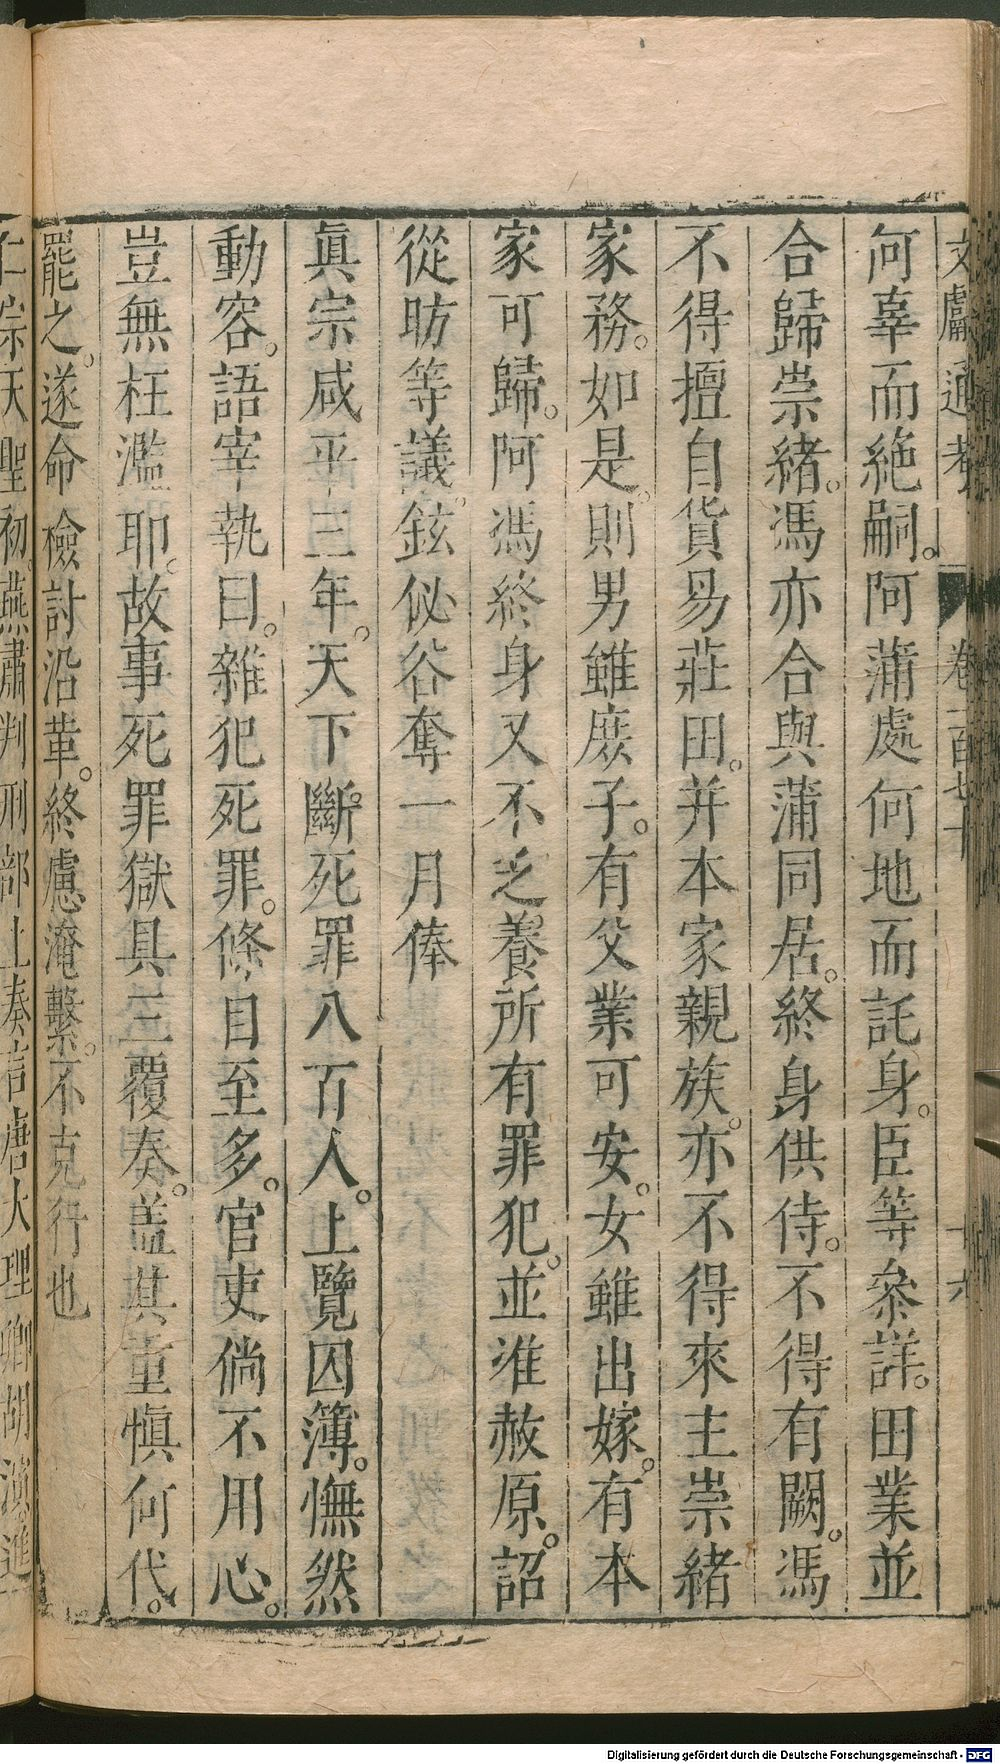 文獻通考 卷一百七十 十六
何辜而絶嗣。阿蒲處何地而託身。臣等叅詳。田業並
合歸崇緒。馮亦合與蒲同居。終身供侍。不得有闕。馮
不得擅自貨易莊田。并本家親族。亦不得來主崇緒
家務。如是。則男雖庶子。有父業可安。女雖出嫁。有本
家可歸。阿馮終身又不乏養。所有罪犯。並准赦原。詔
從昉等議。鉉佖各奪一月俸
眞宗咸平三年。天下斷死罪八百人。上覽囚簿。憮然
動容。語宰執曰。雜犯死罪。條目至多。官吏倘不用心。
豈無枉濫耶。故事死罪獄具三覆奏。盖其重愼何代
罷之。遂命檢討沿革。終慮淹繫。不克行也
仁宗天聖初。燕肅判刑部上奏言唐大理卿胡演進
Digitalisierung gefördert durch die Deutsche Forschungsgemeinschaft - DFG